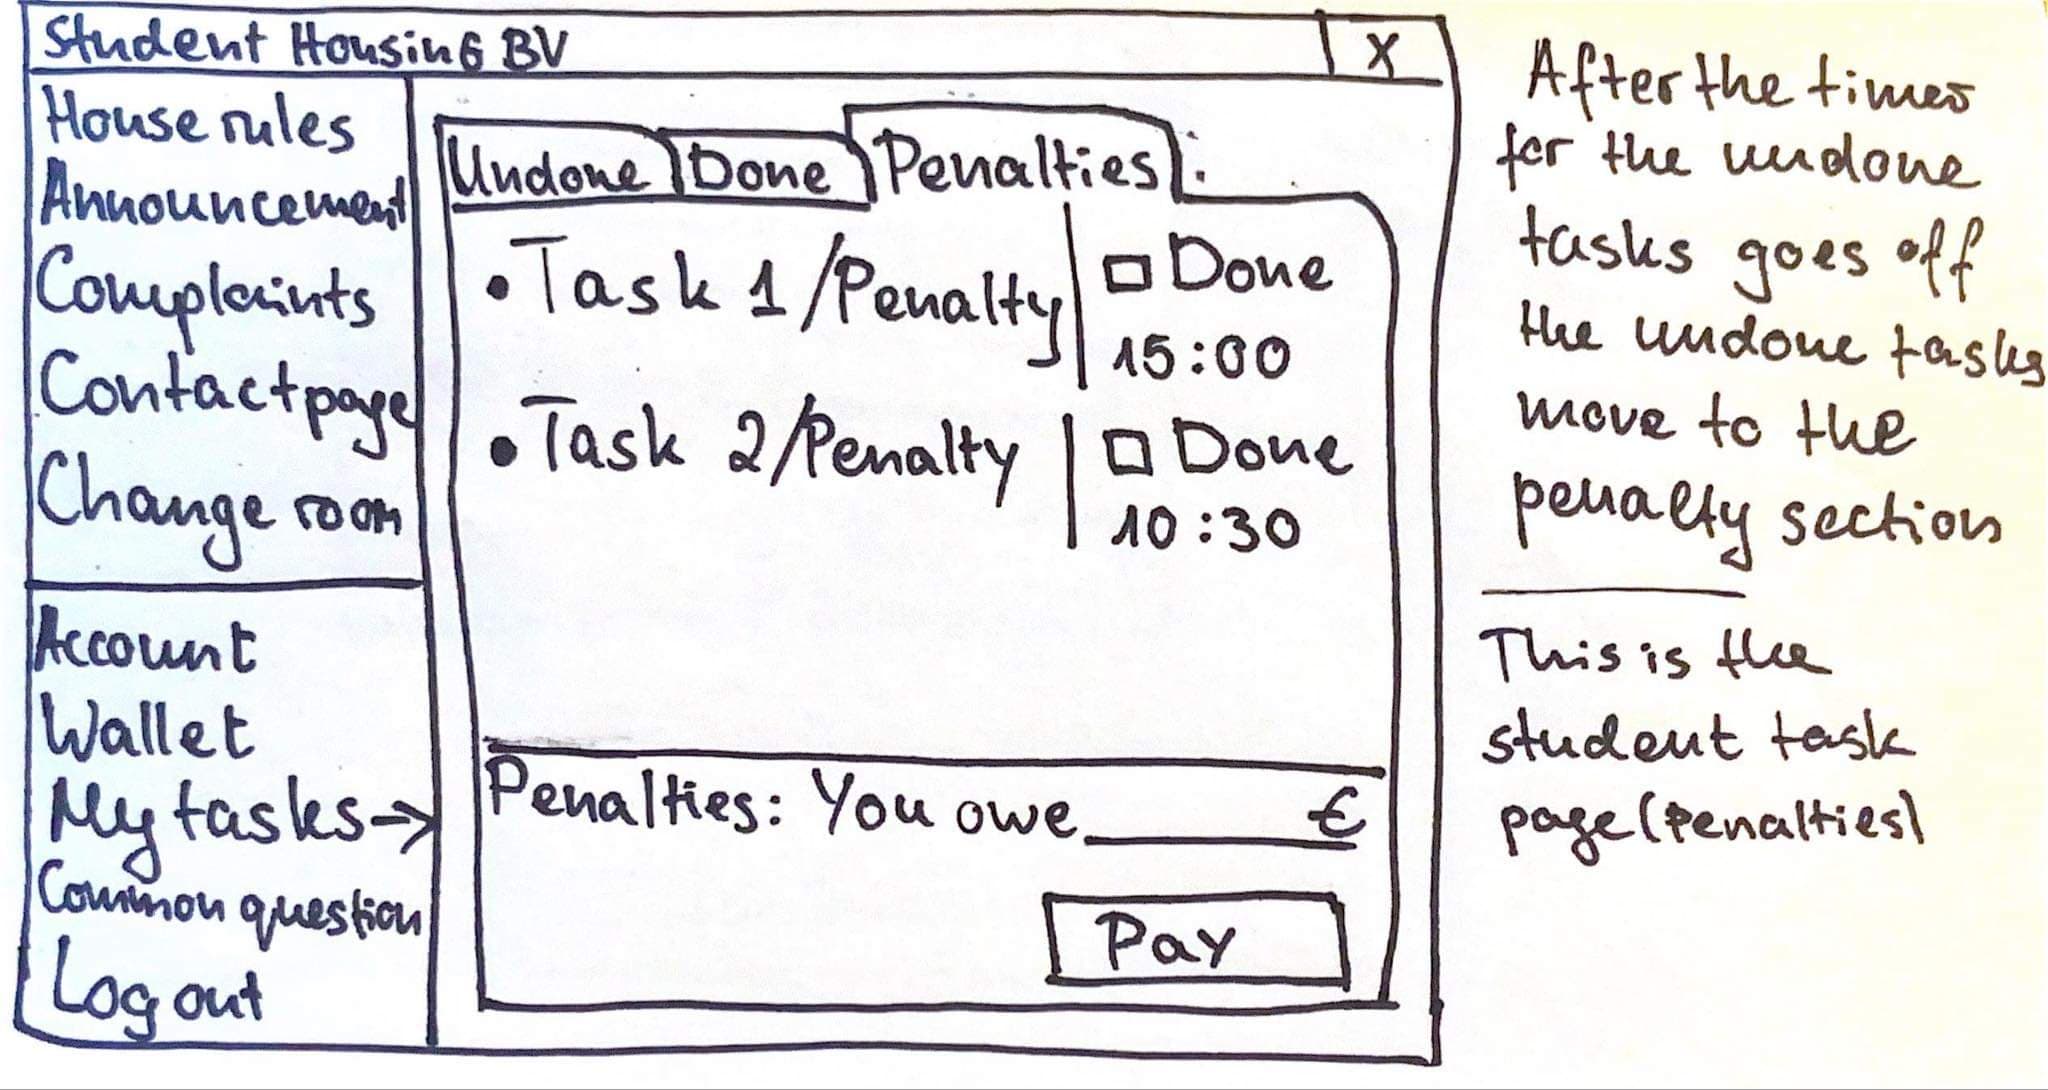 Student Housing BV X
House rules
Announcement
Complaints
Contact page
Change room
Account
Wallet
My tasks →
Common question
Log out
Undone Done Penalties
• Task 1/Penalty □ Done
15:00
• Task 2/Penalty □ Done
10:30
Penalties: You owe ____ €
Pay
After the timer
for the undone
tasks goes off
the undone tasks
move to the
penalty section
This is the
student task
page (Penalties)